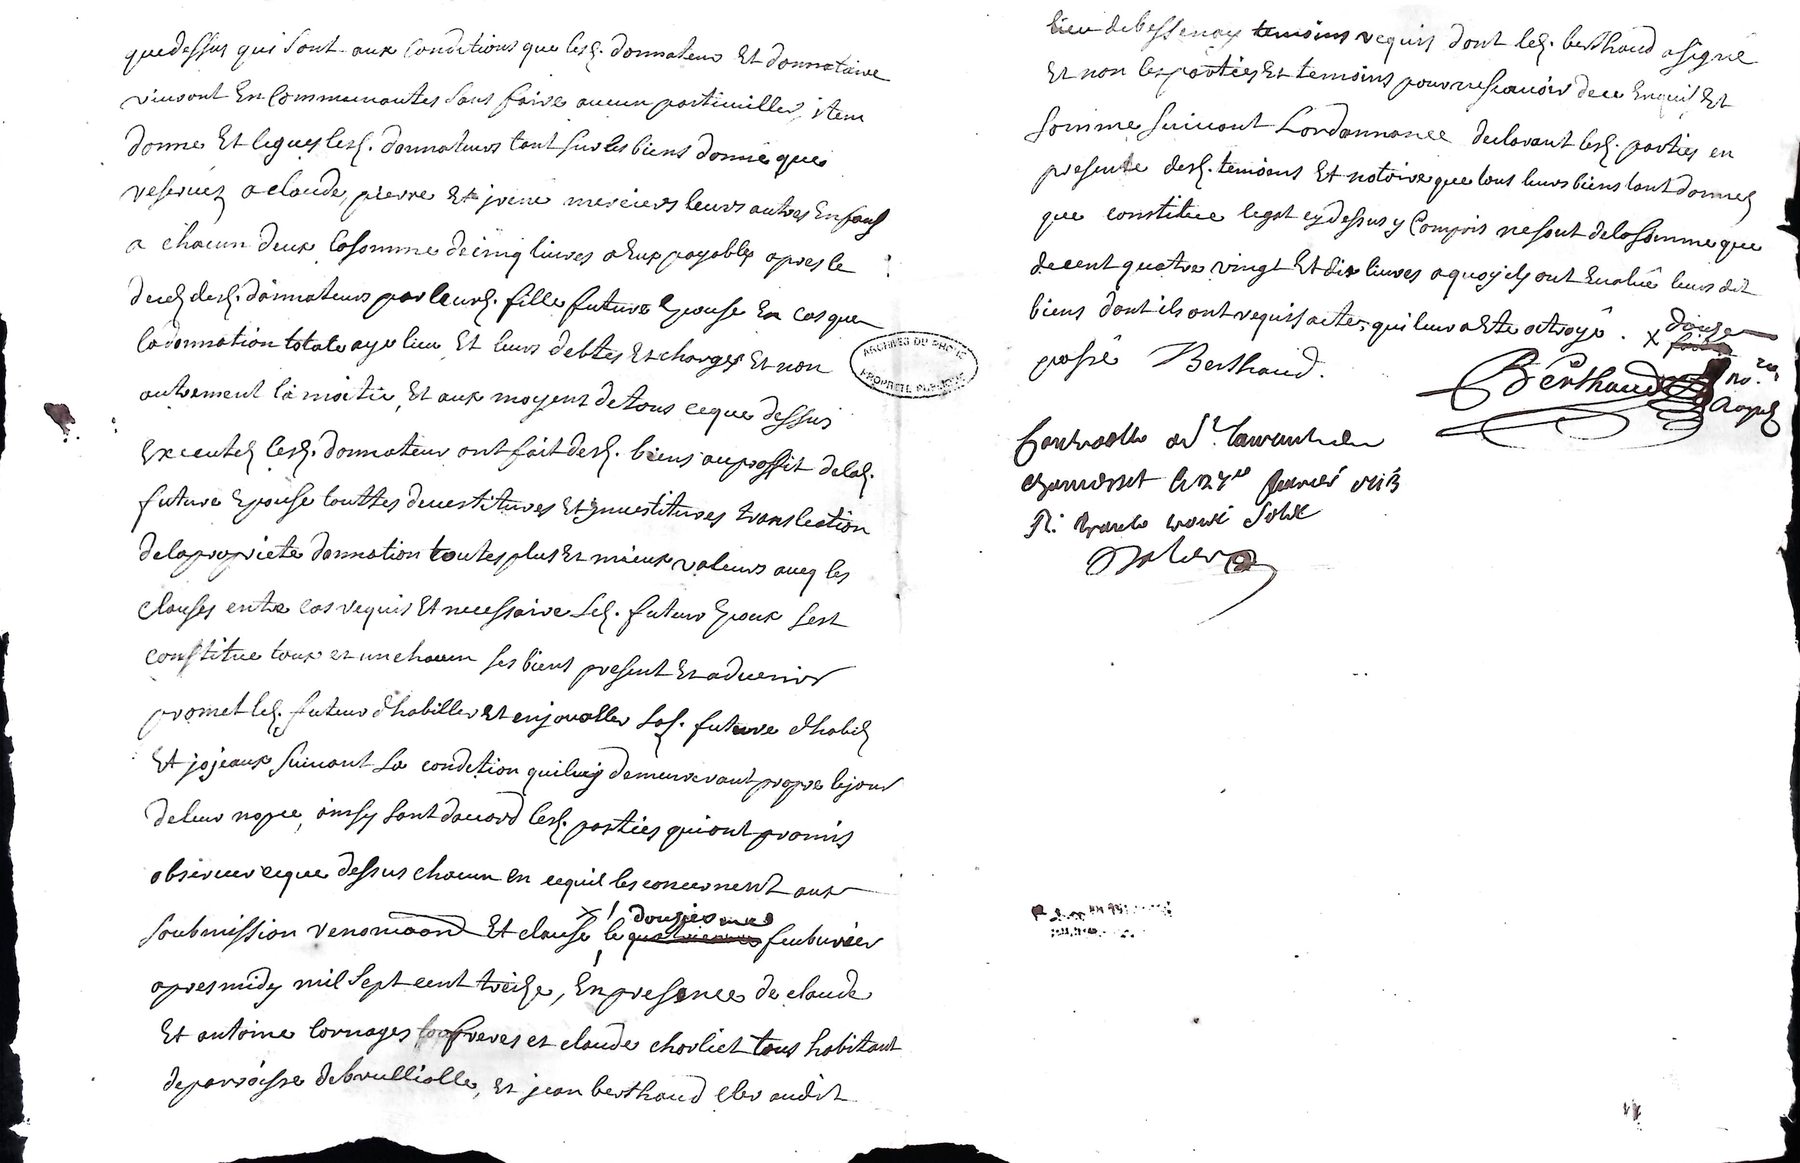 que dessus qui sont aux Conditions que lesd. donnateurs Et donnataire
vivront En Communautes sans faire aucun particuiller, item
donne Et legues lesd. donnateurs tant sur les biens donné que
reservéz a claude, pierre Et mercier leurs autres Enfans
a chacun deux la somme de cinq livres a Eux payables apres le
deced desd. donnateurs par leurd. fille future Epouse En cas que
la donnation totale aye lieu Et leurs debtes Et charges Et non
autrement la moitie, Et aux moyens de tous ce que dessus
Executes lesd. donnateurs ont fait desd. biens au proffit de lad.
future Epouse touttes devestitures Et Investitures translection
de la propriete donnation toutes plus Et mieux valeurs aveq les
clauses entre cas requis Et necessaire Led. futur Epoux sest
constitue tous et un chacun ses biens present Et advenir
promet led. futeur d'habiller Et enjoualler lad. future d'habid
Et jojeaux suivant sa condition qui luy demeureront propre le jour
de leur nopce, ainsy sont d'acord lesd. parties qui ont promis
observer ce que dessus chacun en ce quil les concernent aux
soubmission renonçaõn Et clause, × le douziesme feubvrier
apres midy mil sept cent treize, En presence de claude
Et antoine Cornages freres et claude chorliet tous habitant
de parroisse de brullialle, Et jean berthaud clerc audit
lieu de bessenay temoins requis dont led. berthaud a signé
Et non les parties Et temoins pour ne scavoir de ce Enquis Et
somme suivant Lordonnance declarant lesd. parties en
presente desd. temoins Et notaire que tous leurs biens tant donnez
que constitue legat cy dessus y Compris ne sont de la somme que
de cent quatre vingt Et dix livres a quoy ils ont Evalué leurs dit
biens dont ils ont requis acte, qui leur a Este octroyé. × douze
passé Berthaud.
Berthaud no.re Royal
Controolle a St. laurent de
chamousset le
R.